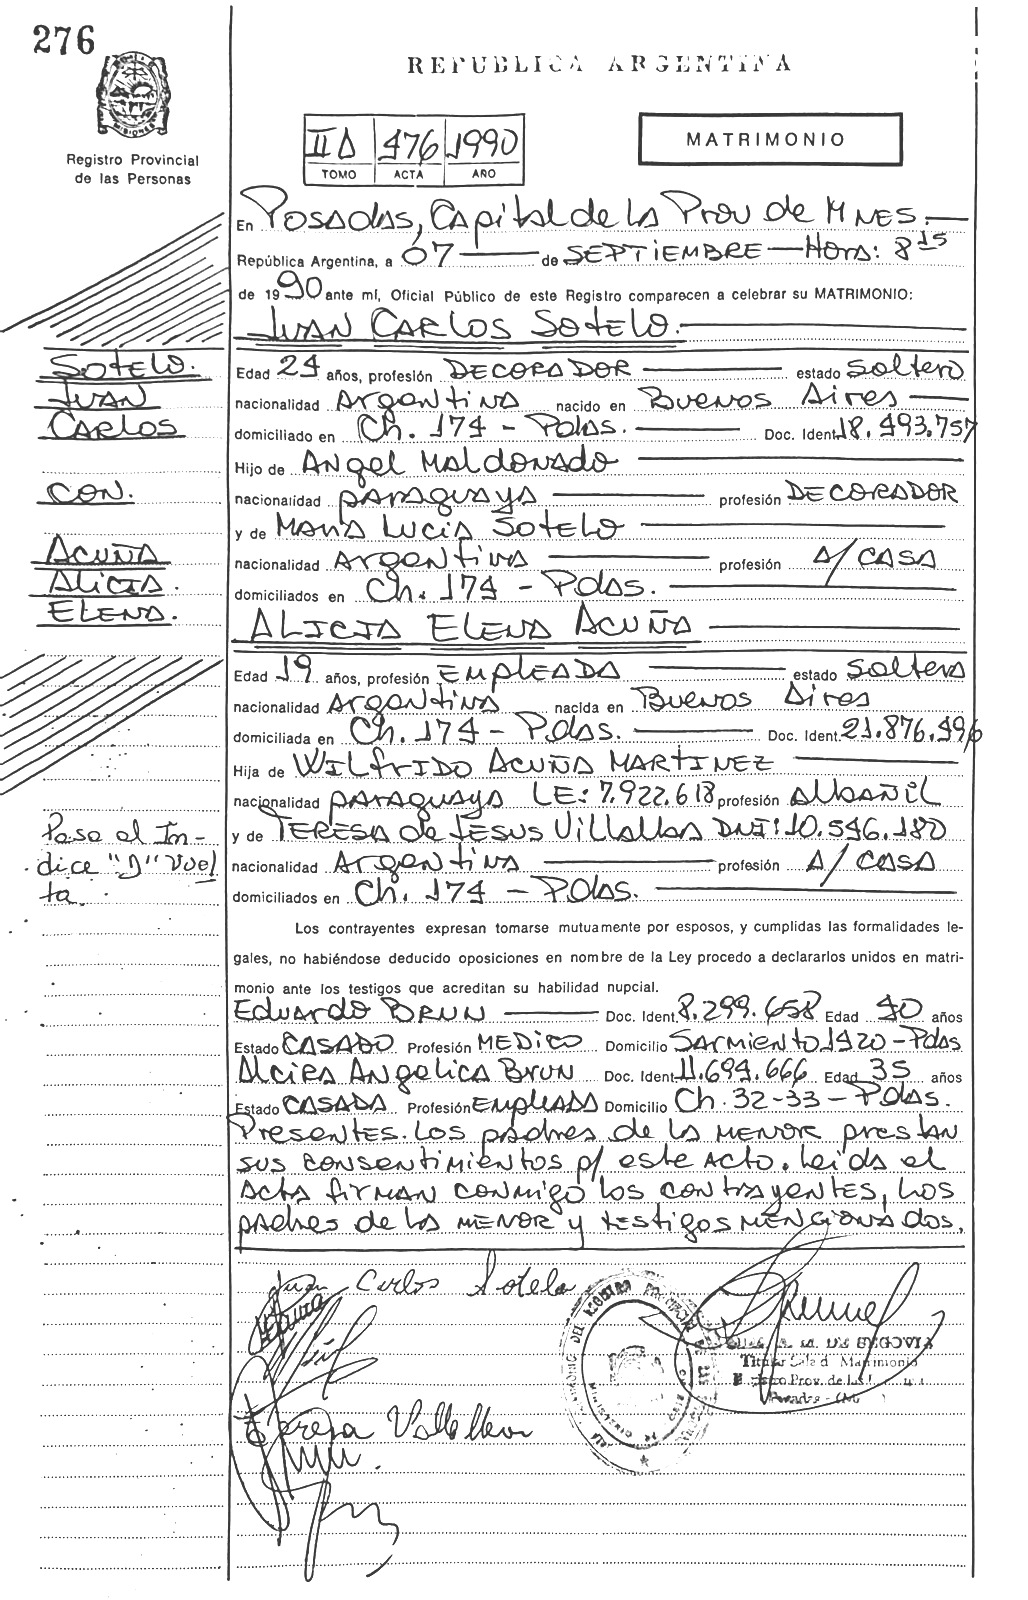 276
REPUBLICA ARGENTINA
MISIONES
Registro Provincial
de las Personas
II D 476 1990
TOMO ACTA AÑO
MATRIMONIO
En Posadas, Capital de la Prov de Mnes.
República Argentina, a 07 de SEPTIEMBRE Hora: 8 15
de 1990 ante mí, Oficial Público de este Registro comparecen a celebrar su MATRIMONIO:
JUAN CARLOS SOTELO.
Edad 24 años, profesión DECORADOR estado soltero
nacionalidad Argentina nacido en Buenos Aires
domiciliado en Ch. 174 - Pdas. Doc. Ident. 18.493.757
Hijo de Angel Maldonado
nacionalidad paraguaya profesión DECORADOR
y de Maria Lucia Sotelo
nacionalidad Argentina profesión A/ CASA
domiciliados en Ch. 174 - Pdas.
ALICIA ELENA ACUÑA
Edad 19 años, profesión EMPLEADA estado soltera
nacionalidad Argentina nacida en Buenos Aires
domiciliada en Ch. 174 - Pdas. Doc. Ident. 21.876.496
Hija de Wilfrido Acuña Martinez
nacionalidad paraguaya LE: 7.922.618 profesión Albañil
y de Teresa de Jesus Villalba DNI: 10.546.180
nacionalidad Argentina profesión A/ CASA
domiciliados en Ch. 174 - Pdas.
Los contrayentes expresan tomarse mutuamente por esposos, y cumplidas las formalidades le-
gales, no habiéndose deducido oposiciones en nombre de la Ley procedo a declararlos unidos en matri-
monio ante los testigos que acreditan su habilidad nupcial.
Eduardo BRUN Doc. Ident. 8.299.658 Edad 40 años
Estado CASADO Profesión MEDICO Domicilio Sarmiento 1420 - Pdas
Alcira Angelica Brun Doc. Ident. 11.694.666 Edad 35 años
Estado CASADA Profesión EMPLEADA Domicilio Ch. 32-33 - Pdas.
Presentes. Los padres de la menor prestan
sus consentimientos p/ este Acto. Leida el
Acta firman conmigo los contrayentes, los
padres de la menor y testigos mencionados.
SOTELO.
JUAN
CARLOS
CON.
ACUÑA
ALICIA.
ELENA.
Pasa al In-
dice "J" Vuel
ta.
Juan Carlos Sotelo
Teresa Villalba
DE SEGOVIA
Titular Sala d Matrimonio
Prov. de las
Posadas - (M